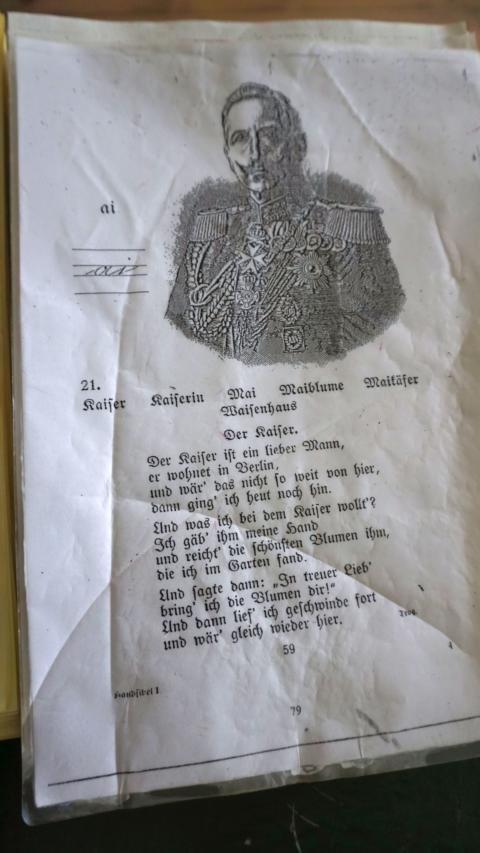 ai
ai
21.
Kaiser Kaiserin Mai Maiblume Maikäfer
Waisenhaus
Der Kaiser.
Der Kaiser ist ein lieber Mann,
er wohnet in Berlin,
und wär' das nicht so weit von hier,
dann ging' ich heut noch hin.
Und was ich bei dem Kaiser wollt'?
Ich gäb' ihm meine Hand
und reicht' die schönsten Blumen ihm,
die ich im Garten fand.
Und sagte dann: „In treuer Lieb'
bring' ich die Blumen dir!“
Und dann lief' ich geschwinde fort
und wär' gleich wieder hier.
59
4
Handfibel I
79